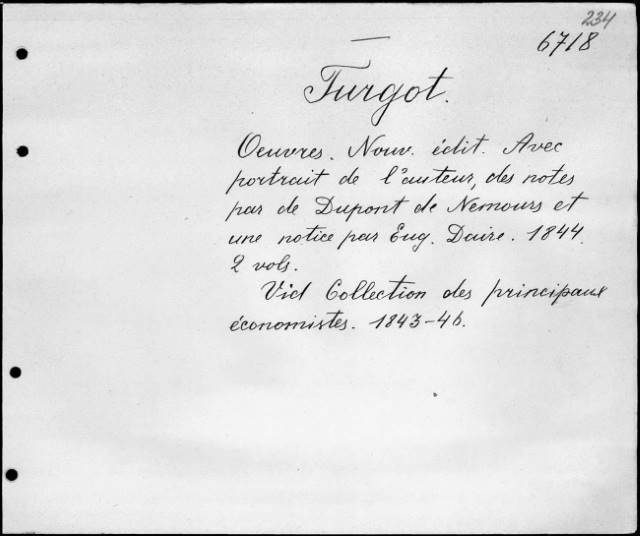 234
6718
Turgot.
Oeuvres. Nouv. édit. Avec
portrait de l'auteur, des notes
par de Dupont de Nemours et
une notice par Eug. Daire. 1844.
2 vols.
Vid Collection des principaux
économistes. 1843-46.